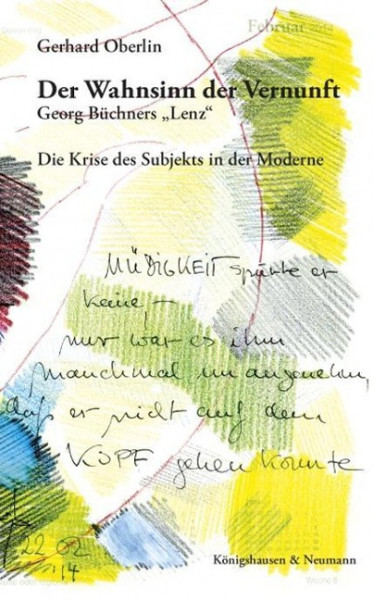 Februar 2014
Gerhard Oberlin
Der Wahnsinn der Vernunft
Georg Büchners „Lenz“
Die Krise des Subjekts in der Moderne
MÜDIGKEIT spürte er
keine, –
nur war es ihm
manchmal unangenehm,
daß er nicht auf dem
KOPF gehen konnte
22 02
'14
Königshausen & Neumann
Woche 8